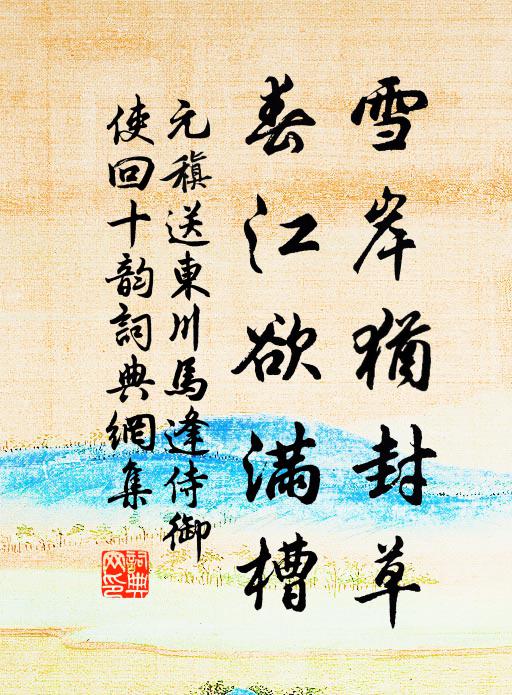 雪岸犹封草
春江欲满槽
元稹送東川馬逢侍御
使回十韵詞典網集
詞典
网印